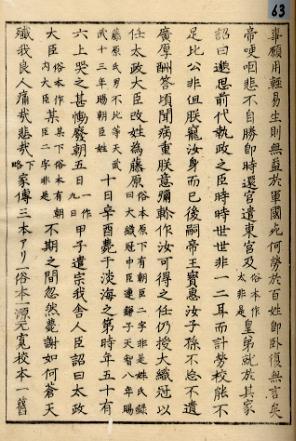 63
事願用輕易生則無益於軍國死何勞於百姓即卧復無言矣
帝哽咽悲不自勝即時還宮遣東宮及俗本作太非是皇弟就於其家
詔曰邈思前代執政之臣時時世世非一二耳而計勞校能不
足比公非但朕寵汝身而已後嗣帝王實惠汝子孫不忘不遺
廣厚酬答頃聞病重朕意彌軫作汝可得之任仍授大織冠以
任太政大臣改姓為藤原俗本原下有朝臣二字非是姓氏錄曰大織冠中臣連鎌子天智八年賜
藤原氏男不比等天武武十三年賜朝臣姓十日辛酉薨于淡海之第時年五十有
六上哭之甚慟廢朝五日一作九日甲子遣宗我舍人臣詔曰太政
大臣俗本作內大臣某某下俗本有朝臣二字非是不期之間忽然薨謝如何蒼天
殲我良人痛哉悲哉下略家傳三本アリ俗本一源元寬校本一舊